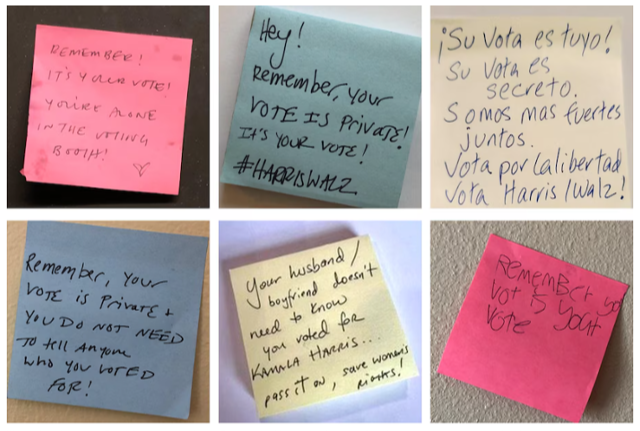 REMEMBER!
IT'S YOUR VOTE!
YOU'RE ALONE
IN THE VOTING
BOOTH!
Hey!
Remember, your
VOTE IS Private!
IT'S YOUR VOTE!
#HARRISWALZ
¡Su Vota es tuyo!
Su Vota es
secreto.
Somos mas fuertes
juntos.
Vota por la libertad
Vota Harris/Walz!
Remember, Your
VOTE is PRIVATE +
YOU DO NOT NEED
TO tell ANYONE
WHO YOU VOTED
FOR!
Your husband/
boyfriend doesn't
need to know
you voted for
KAMALA HARRIS...
pass it on, save women's
RIGHTS!
REMEMBER yo
Vot is your
Vote